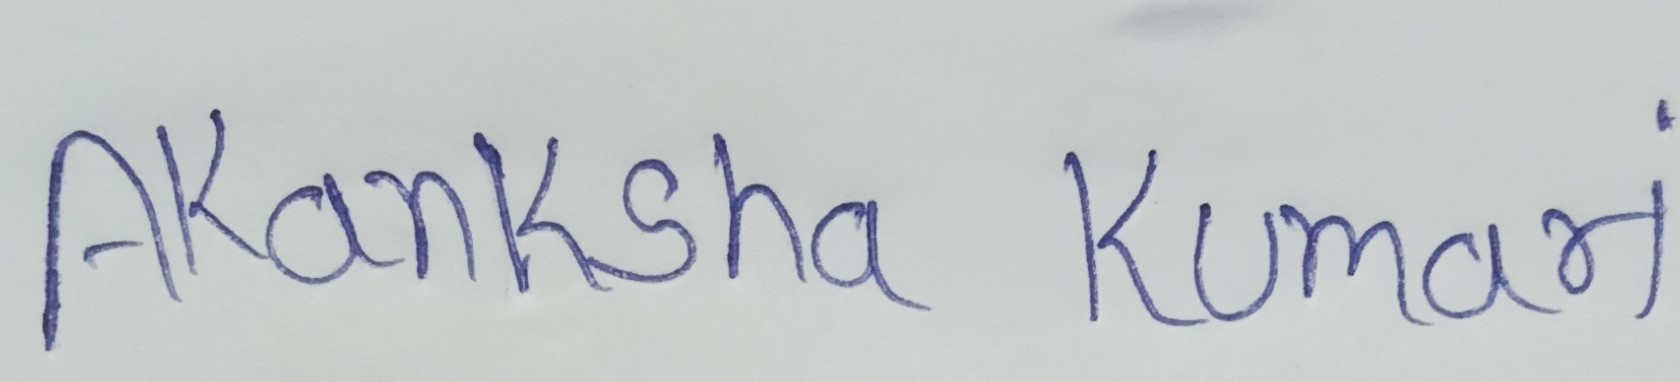 Akanksha Kumari